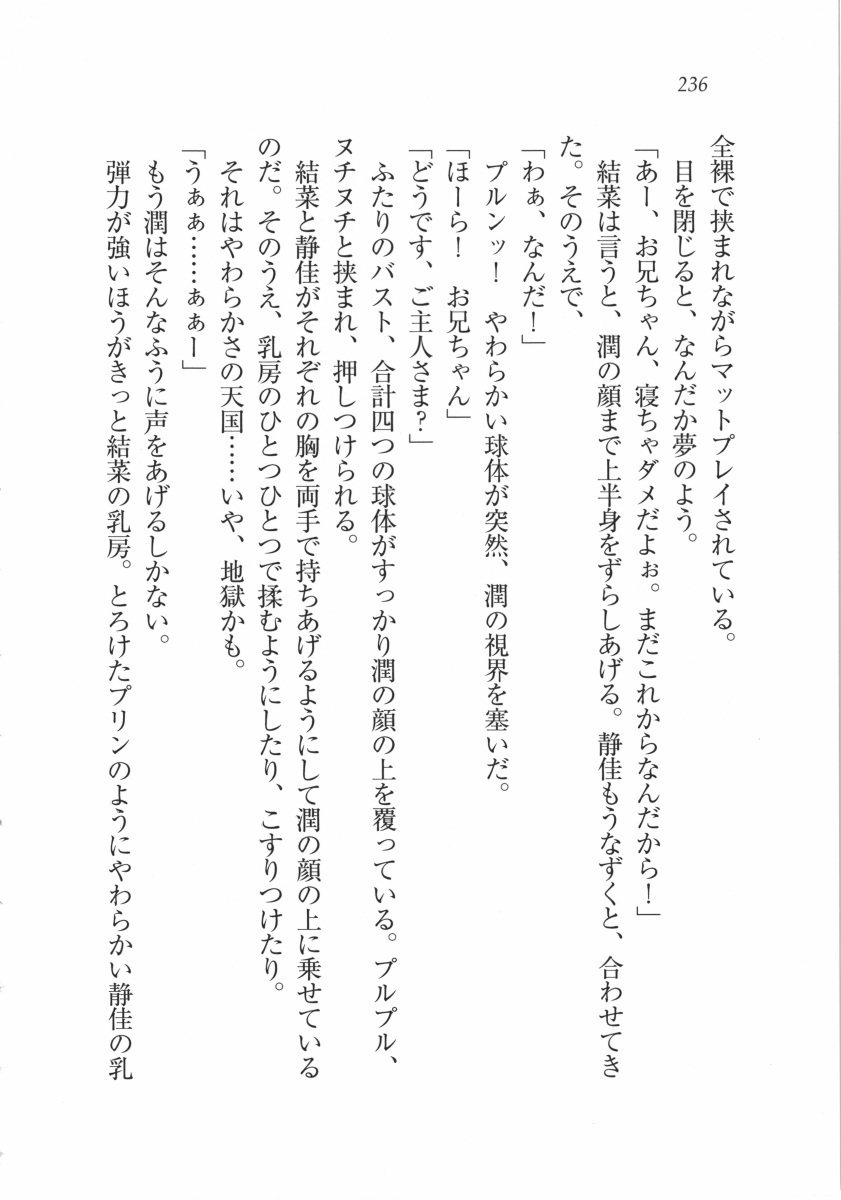 236
全裸で挟まれながらマットプレイされている。
目を閉じると、なんだか夢のよう。
「あー、お兄ちゃん、寝ちゃダメだよぉ。まだこれからなんだから！」
結菜は言うと、潤の顔まで上半身をずらしあげる。静佳もうなずくと、合わせてき
た。そのうえで、
「わぁ、なんだ！」
プルンッ！　やわらかい球体が突然、潤の視界を塞いだ。
「ほーら！　お兄ちゃん」
「どうです、ご主人さま？」
ふたりのバスト、合計四つの球体がすっかり潤の顔の上を覆っている。プルプル、
ヌチヌチと挟まれ、押しつけられる。
結菜と静佳がそれぞれの胸を両手で持ちあげるようにして潤の顔の上に乗せている
のだ。そのうえ、乳房のひとつひとつで揉むようにしたり、こすりつけたり。
それはやわらかさの天国……いや、地獄かも。
「うぁぁ……ぁぁー」
もう潤はそんなふうに声をあげるしかない。
弾力が強いほうがきっと結菜の乳房。とろけたプリンのようにやわらかい静佳の乳